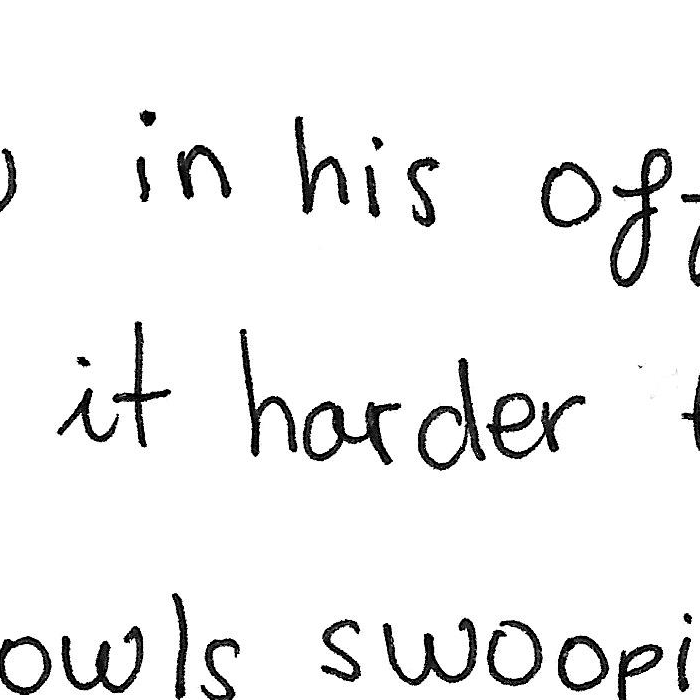 in his off
it harder
owls swoopi